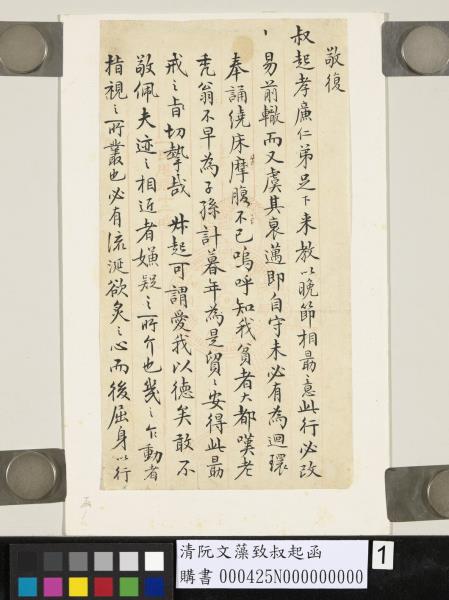 敬復
叔起孝廉仁弟足下来教以晚節相勗意此行必改
易前轍而又虞其衰邁即自守未必有為迴環
奉誦繞床摩腹不已嗚呼知我貧者大都嘆老
禿翁不早為子孫計暮年為是貿貿安得此勗
戒之旨切摯哉 叔起可謂愛我以德矣敢不
敬佩夫迹之相近者嫌疑之所介也幾之乍動者
指視之所叢也必有流涎欲炙之心而後屈身以行
清阮文藻致叔起函
購書 000425N000000000
1